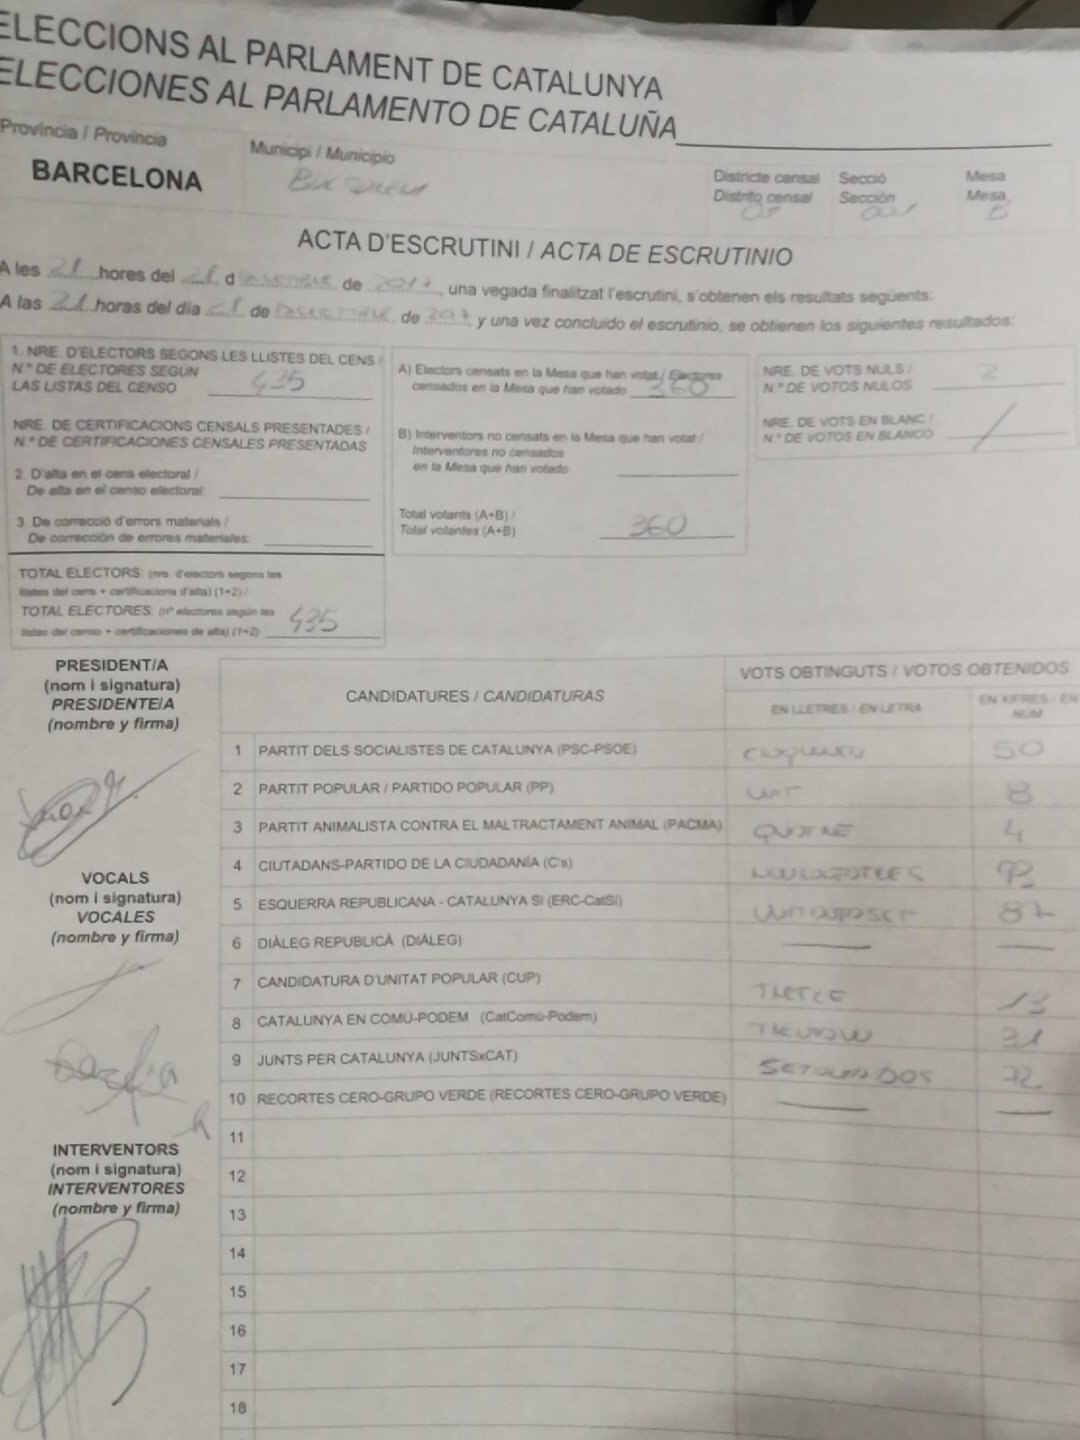 ELECCIONS AL PARLAMENT DE CATALUNYA
ELECCIONES AL PARLAMENTO DE CATALUÑA
Província / Provincia
BARCELONA
Municipi / Municipio
Districte censal
Distrito censal
Secció
Sección
001
Mesa
Mesa
B
ACTA D'ESCRUTINI / ACTA DE ESCRUTINIO
A les 21 hores del 21 d de 2017, una vegada finalitzat l'escrutini, s'obtenen els resultats següents:
A las 21 horas del día 21 de de 2017 y una vez concluido el escrutinio, se obtienen los siguientes resultados:
1. NRE. D'ELECTORS SEGONS LES LLISTES DEL CENS /
N.º DE ELECTORES SEGÚN
LAS LISTAS DEL CENSO 435
NRE. DE CERTIFICACIONS CENSALS PRESENTADES /
N.º DE CERTIFICACIONES CENSALES PRESENTADAS
2. D'alta en el cens electoral /
De alta en el censo electoral:
3. De correcció d'errors materials /
De corrección de errores materiales:
TOTAL ELECTORS: (nre. d'electors segons les
llistes del cens + certificacions d'alta) (1+2) /
TOTAL ELECTORES: (nº electores según las
listas del censo + certificaciones de alta) (1+2) 435
A) Electors censats en la Mesa que han votat / Electores
censados en la Mesa que han votado 360
B) Interventors no censats en la Mesa que han votat /
Interventores no censados
en la Mesa que han votado
Total votants (A+B) /
Total votantes (A+B) 360
NRE. DE VOTS NULS /
N.º DE VOTOS NULOS 2
NRE. DE VOTS EN BLANC /
N.º DE VOTOS EN BLANCO /
PRESIDENT/A
(nom i signatura)
PRESIDENTE/A
(nombre y firma)
VOCALS
(nom i signatura)
VOCALES
(nombre y firma)
INTERVENTORS
(nom i signatura)
INTERVENTORES
(nombre y firma)
CANDIDATURES / CANDIDATURAS
VOTS OBTINGUTS / VOTOS OBTENIDOS
EN LLETRES / EN LETRA
EN XIFRES / EN
NÚM
1 PARTIT DELS SOCIALISTES DE CATALUNYA (PSC-PSOE) 50
2 PARTIT POPULAR / PARTIDO POPULAR (PP) VUIT 8
3 PARTIT ANIMALISTA CONTRA EL MALTRACTAMENT ANIMAL (PACMA) QUATRE 4
4 CIUTADANS-PARTIDO DE LA CIUDADANÍA (C's) 93
5 ESQUERRA REPUBLICANA - CATALUNYA SÍ (ERC-CatSí) 87
6 DIÀLEG REPUBLICÀ (DIÀLEG) — —
7 CANDIDATURA D'UNITAT POPULAR (CUP) TRETCE 13
8 CATALUNYA EN COMÚ-PODEM (CatComú-Podem) 31
9 JUNTS PER CATALUNYA (JUNTSxCAT) 72
10 RECORTES CERO-GRUPO VERDE (RECORTES CERO-GRUPO VERDE) — —
11
12
13
14
15
16
17
18